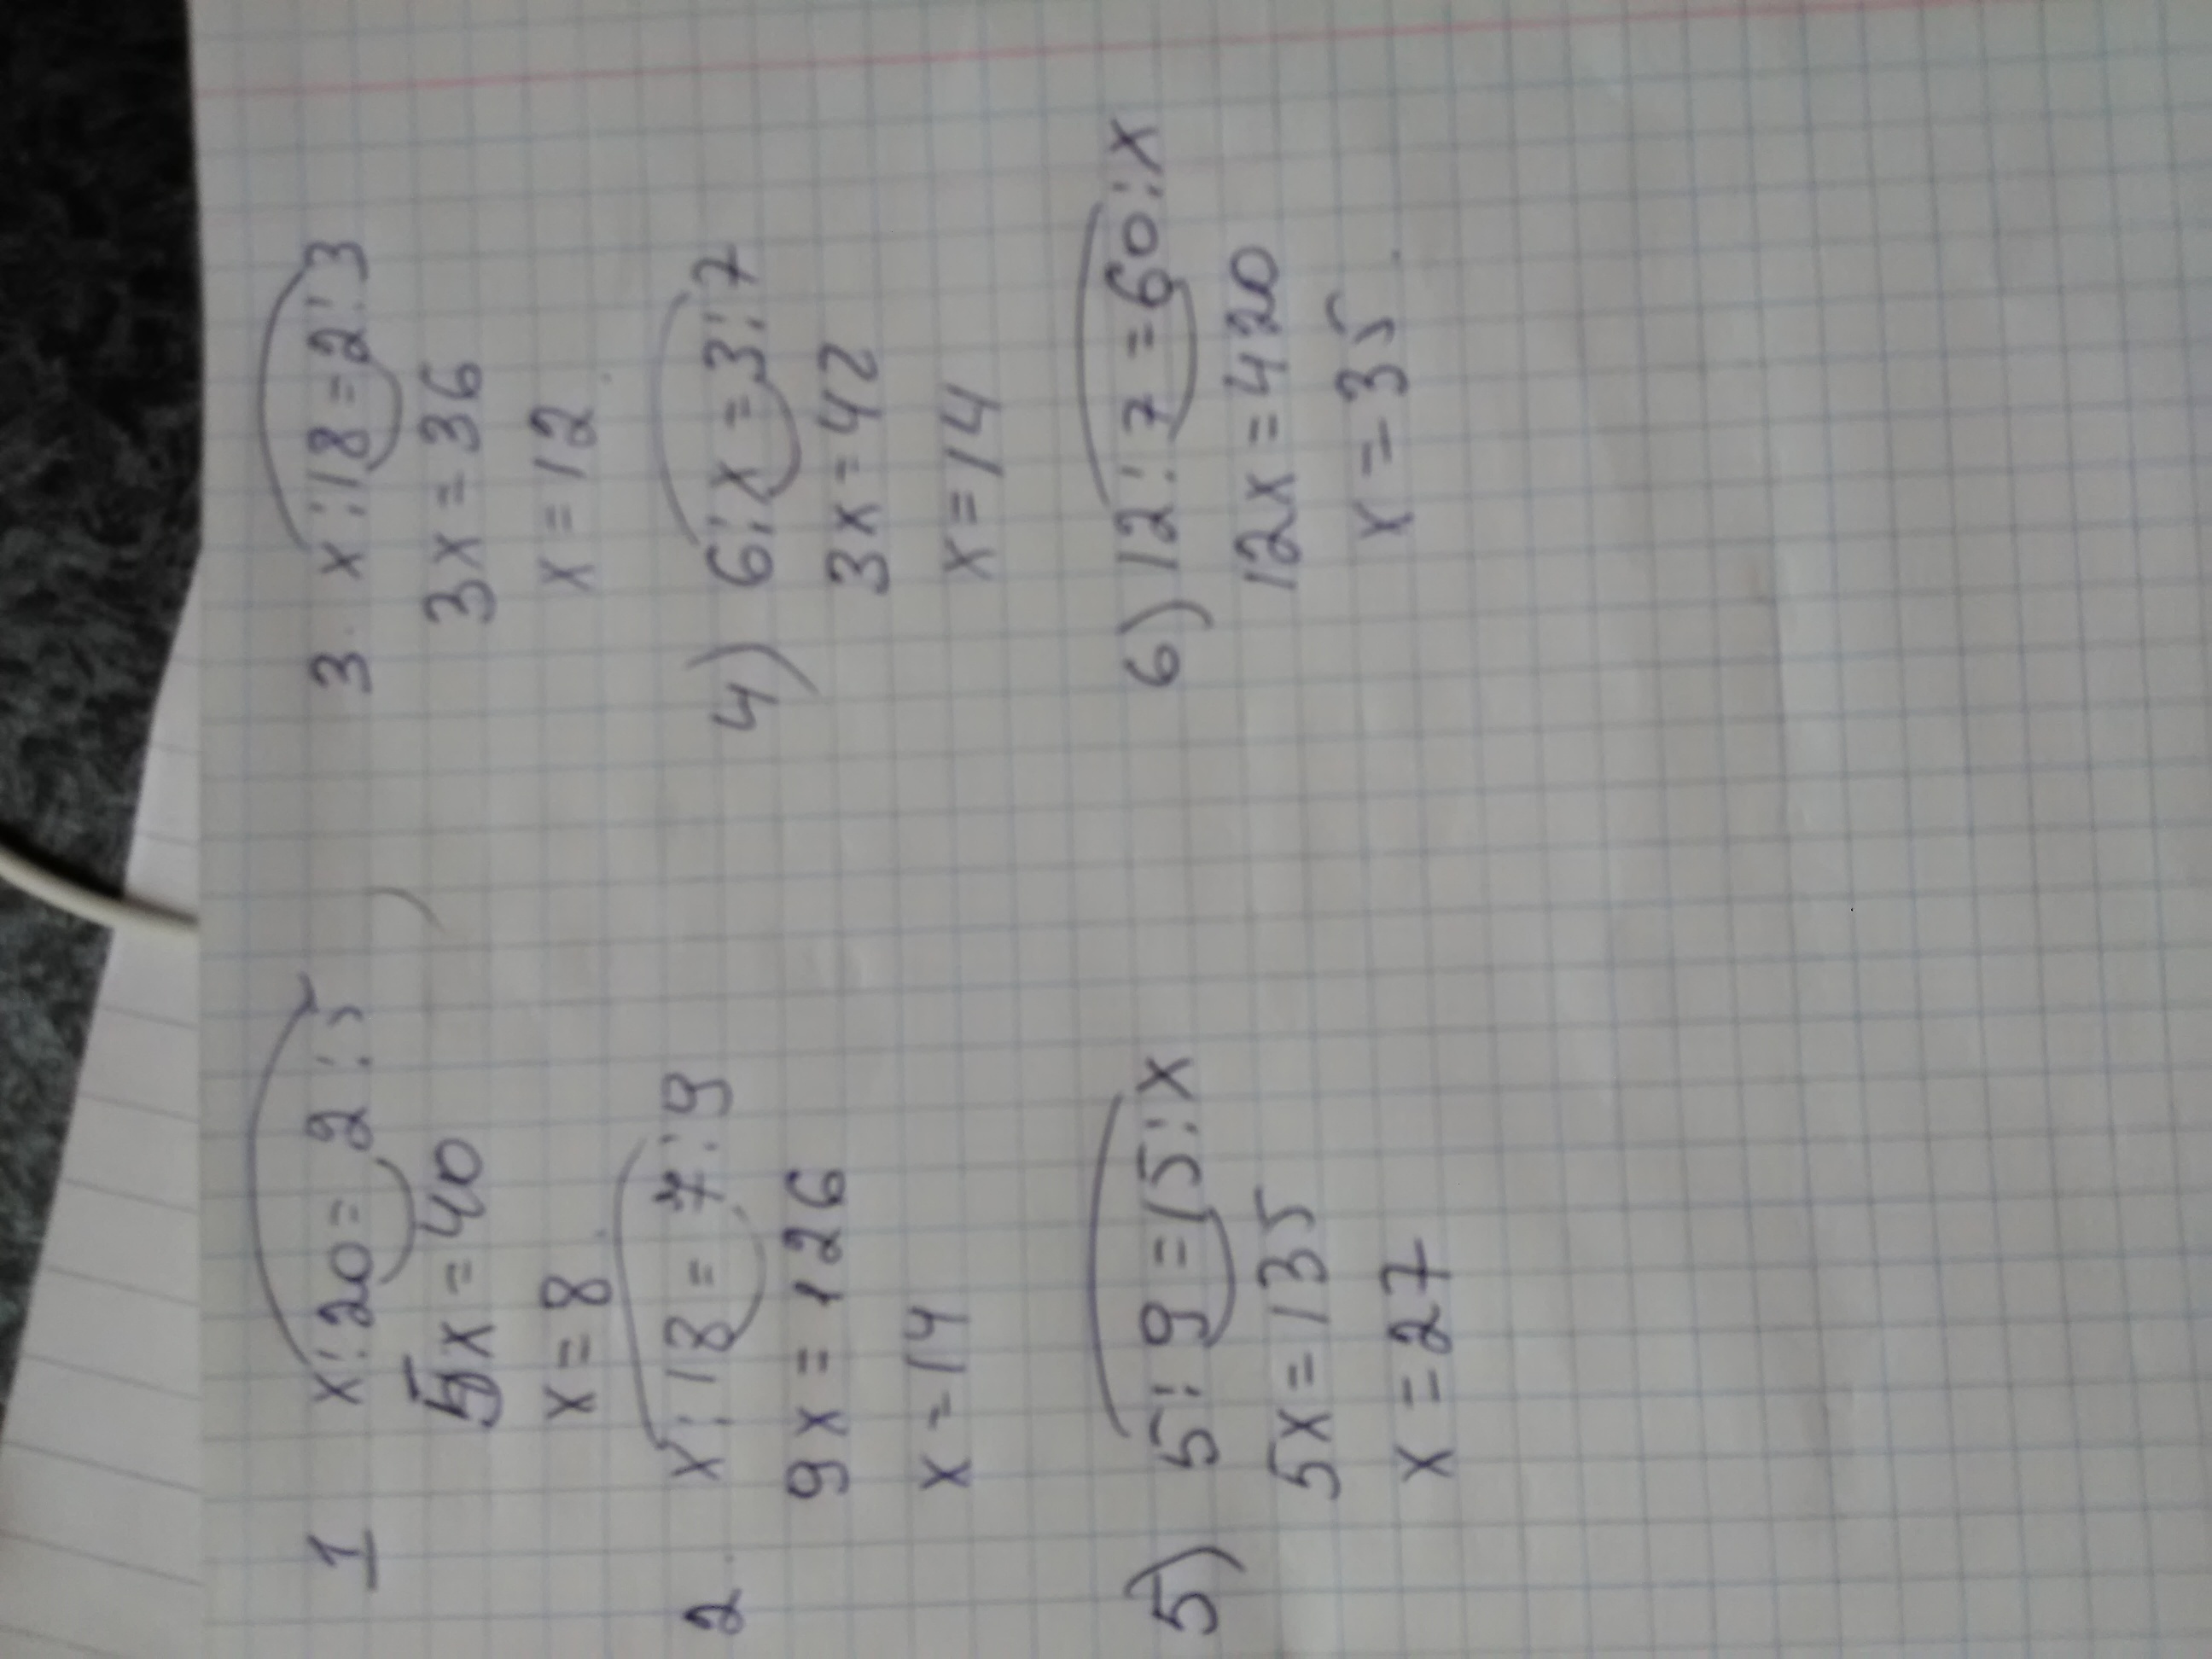 1 x:20=2:5
5x=40
x=8
2. x:18=7:9
9x=126
x=14
5) 5:9=15:x
5x=135
x=27
3. x:18=2:3
3x=36
x=12
4) 6:x=3:7
3x=42
x=14
6) 12:7=60:x
12x=420
x=35